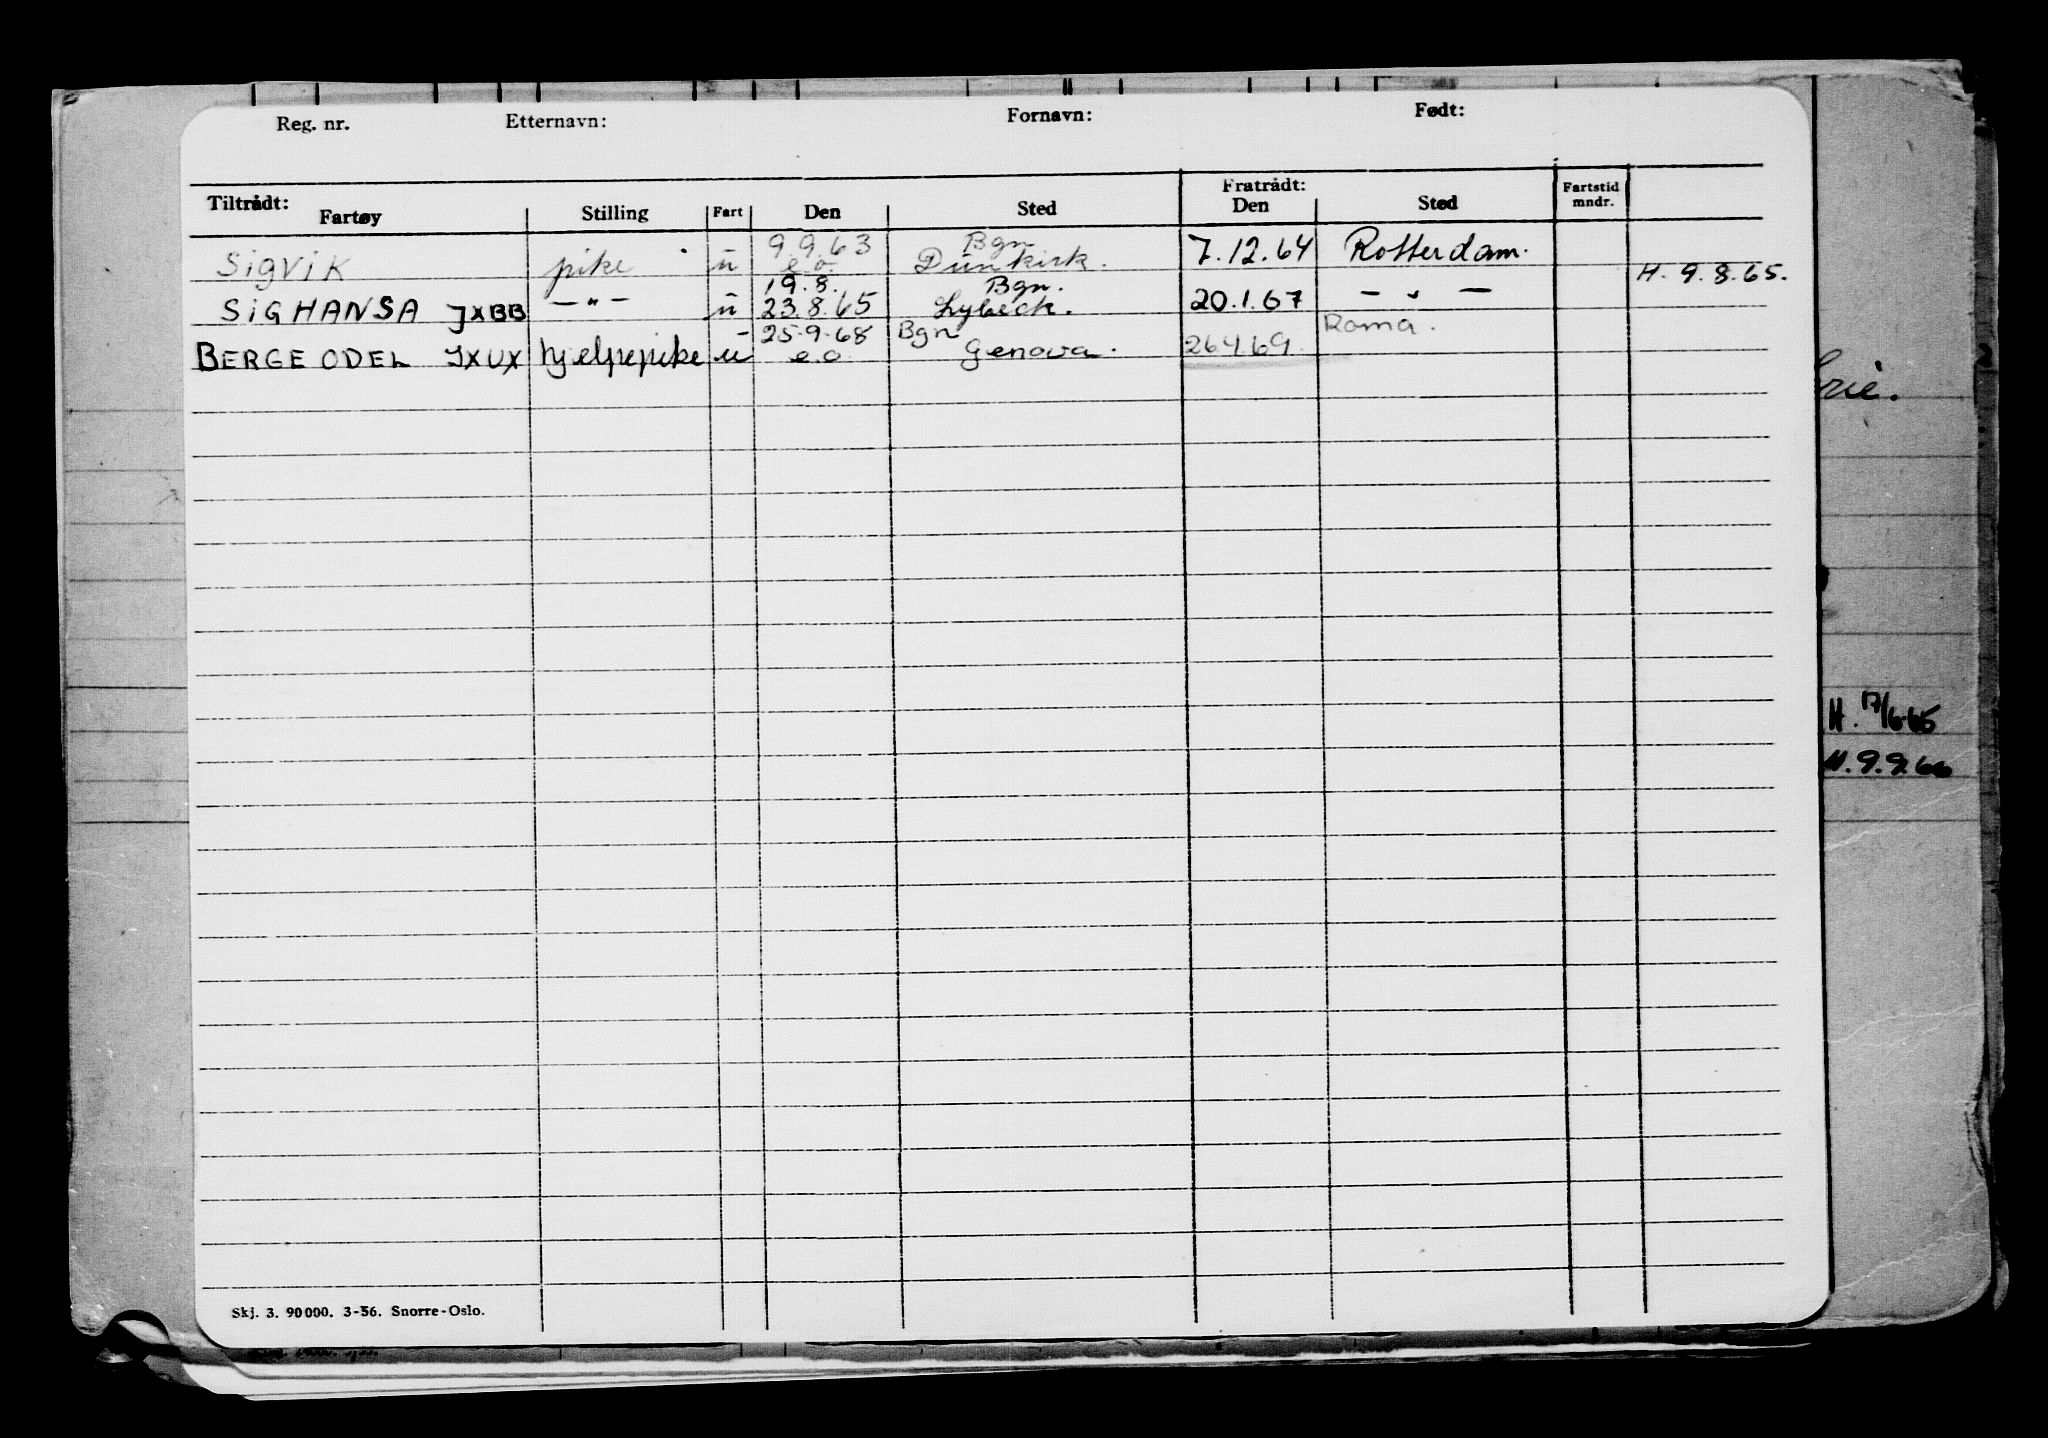 Reg. nr. Etternavn: Fornavn: Født:
Tiltrådt: Fratrådt: Fartstid
Fartøy Stilling Fart Den Sted Den Sted mndr.
9 9 63 Bgn
SigViK pike ū e.o. Dunkirk. 7.12.64 Rotterdam.
19.8. Bgn. H. 9.8.65.
SiGHANSA JXBB —"— ū 23.8.65 Lybeck. 20.1.67 — " —
25-9-68 Bgn Roma.
BERGE ODEL JXUX hjelpepike ū e.o Genova. 26.4.69.
rie.
H. 17/6-65
H. 9.9.66
Skj. 3. 90 000. 3-56. Snorre-Oslo.